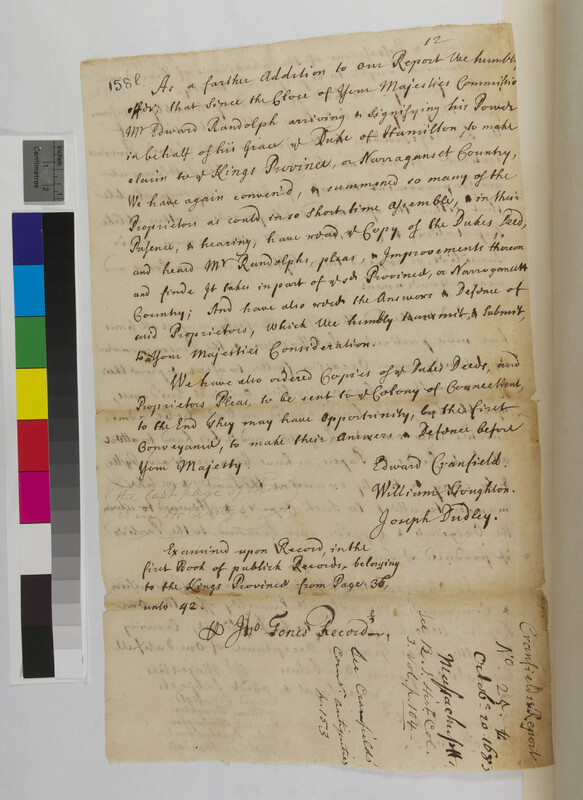 12
158l.
As a farther Addition to our Report We humbly
offer, that Since the Close of Your Majesties Commission
Mr Edward Randolph arriving & Signifying his Power
in behalf of his Grace ye Duke of Hamilton to make
claim to ye Kings Province, or Narraganset Country,
We have again conven'd, & summoned so many of the
Proprietors as could in so short time assemble, & in their
Presence, & hearing, have read ye Copy of the Dukes Deed,
and heard Mr Randolphs, pleas, & Improvements thereon
and finde It takes in part of ye sd Province, or Narragansett
Country; And have also read the Answers & Defence of
said Proprietors, which We humbly transmit, & Submit,
to Your Majesties Consideration.
We have also ordered Copies of ye Dukes Deeds, and
Proprietors Pleas, to be sent to ye Colony of Connecticut,
to the End they may have Opportunity, by the first
Conveyance, to make their Answers & Defence before
Your Majesty.
Edward Cranfield.
William Stoughton.
Joseph Dudley.
the last page of
Examined upon Record, in the
first Book of publick Records, belonging
to the Kings Province from Page 36,
unto 42.
Jno Fones Recorder.
Cranfields Report
No. 25. th
Octobr 20 1683
Massachusetts
See R. I. Hist. Col.
3. Vol. p. 104
See Cranfields
p. 153
Inches
Centimetres